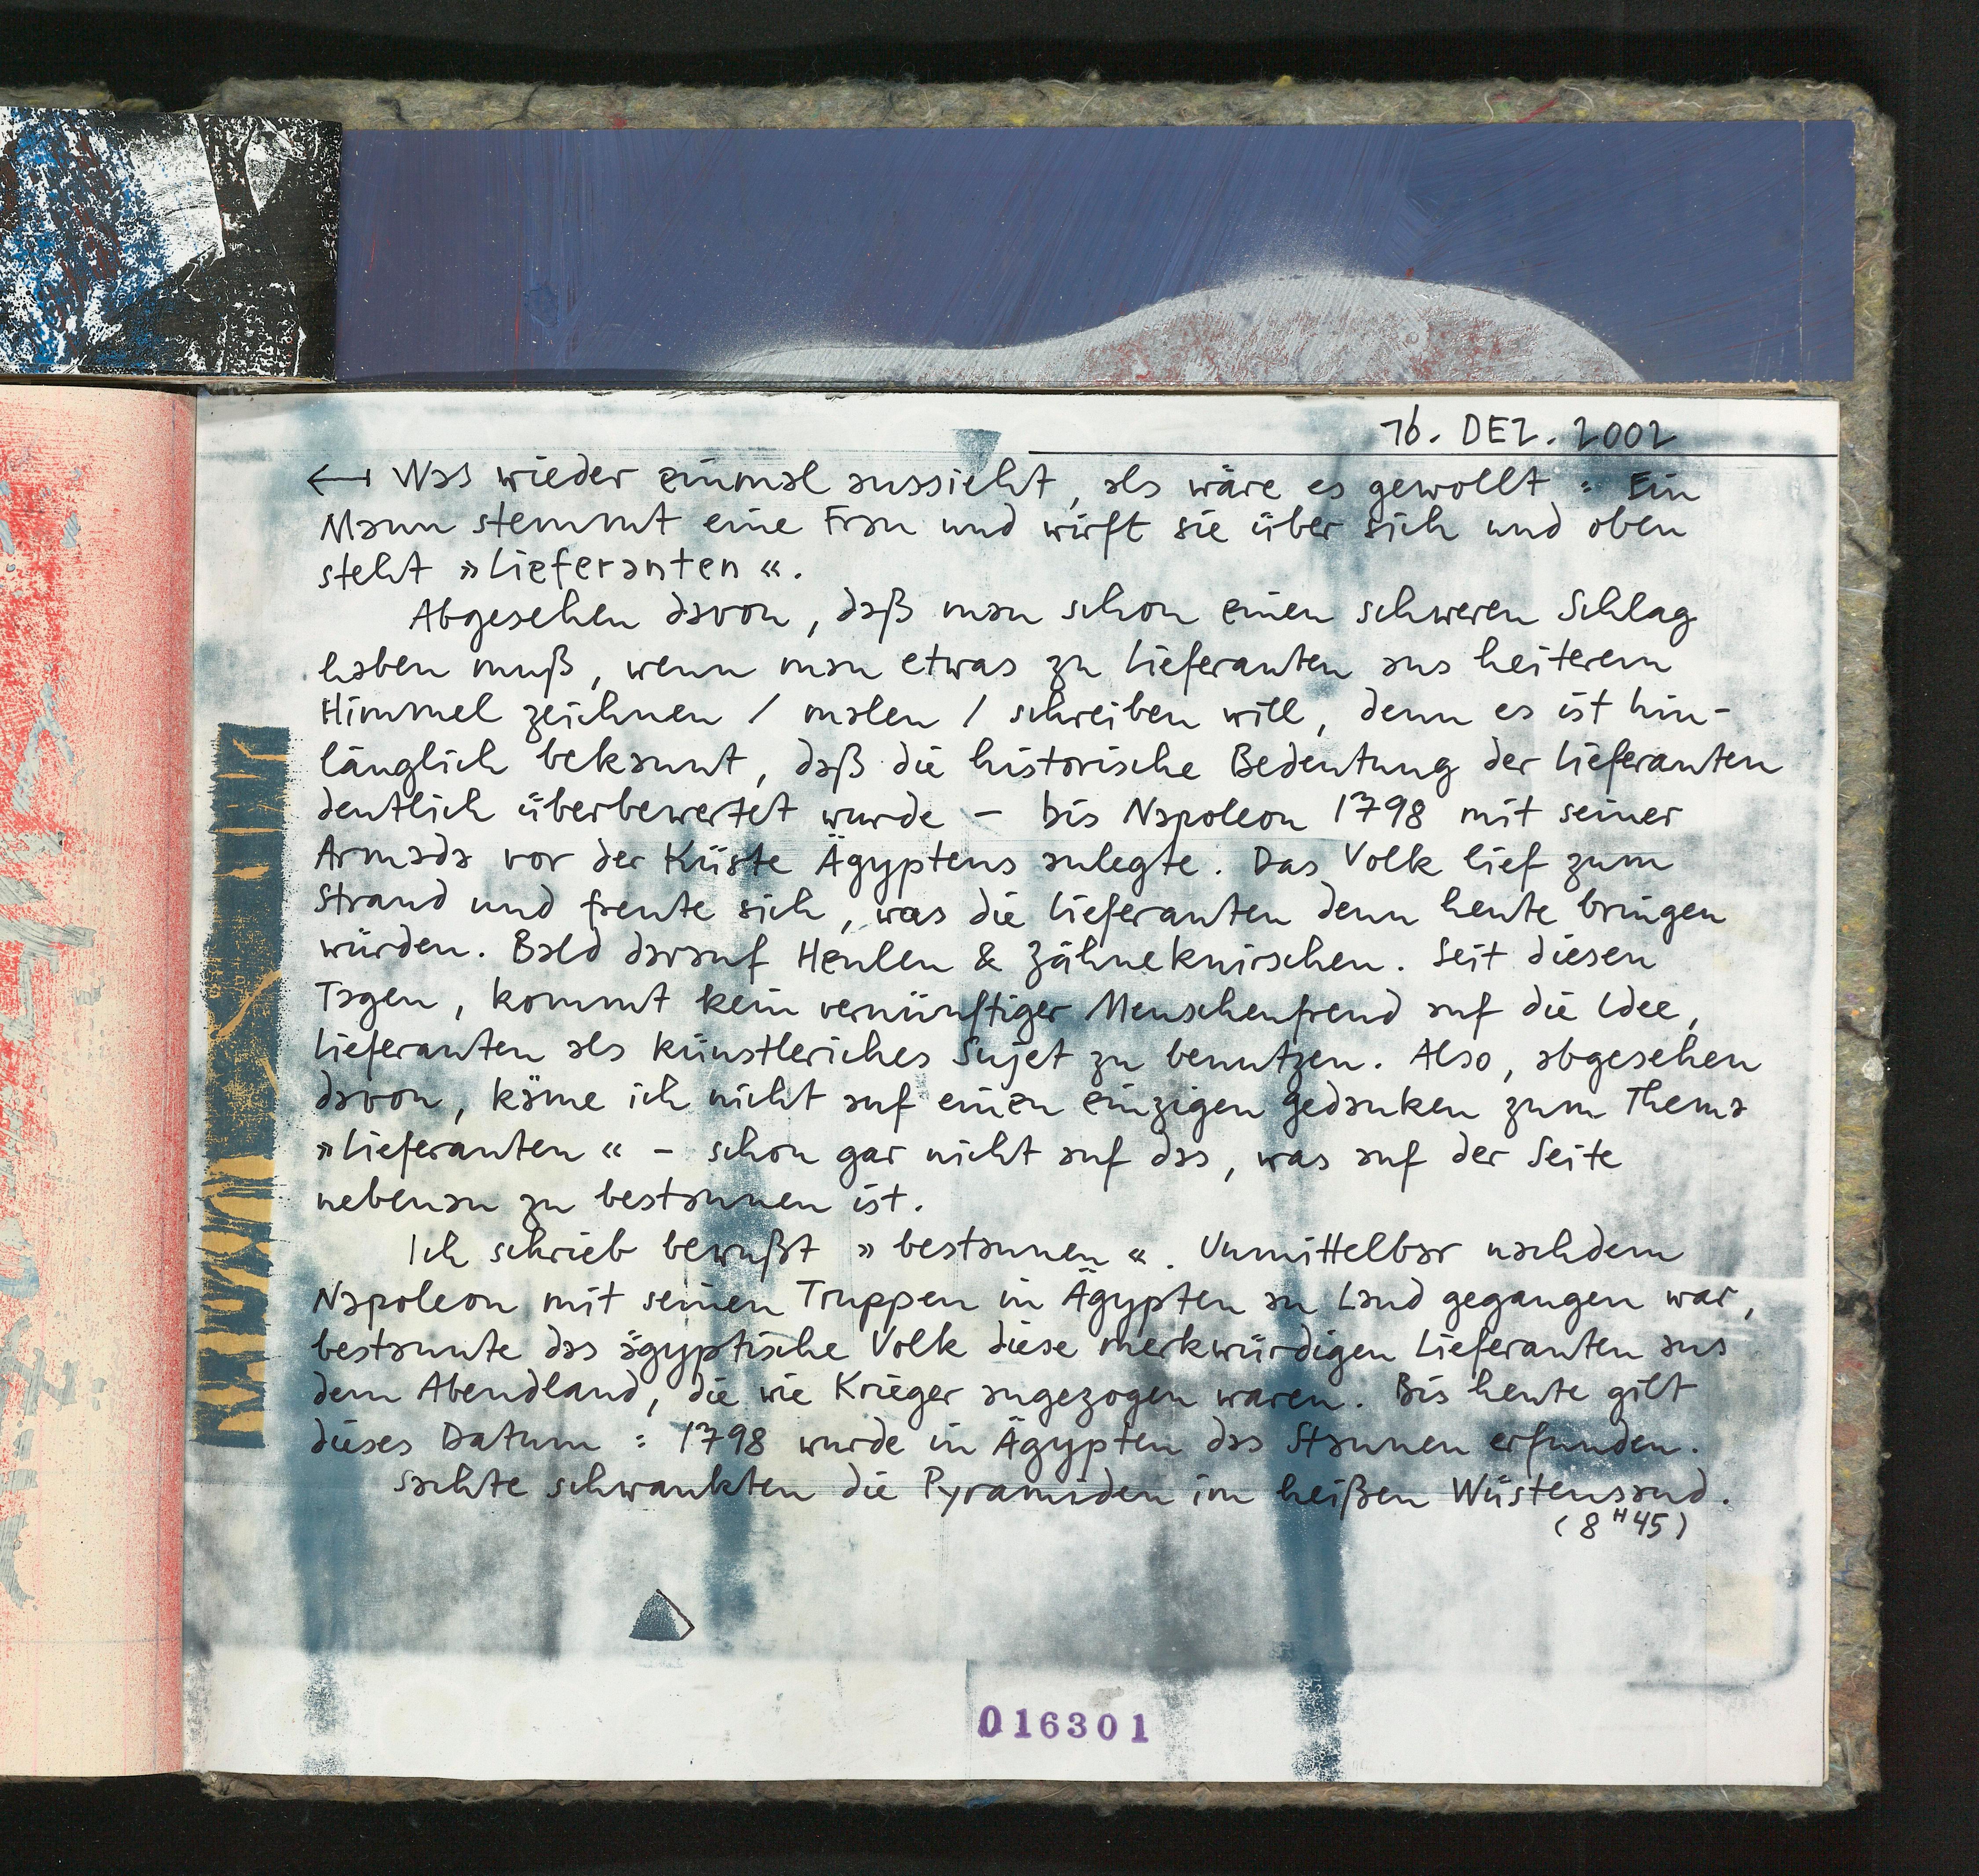 16. DEZ. 2002
⟵ Was wieder einmal aussieht, als wäre es gewollt : Ein
Mann stemmt eine Frau und wirft sie über sich und oben
steht »Lieferanten«.
Abgesehen davon, daß man schon einen schweren Schlag
haben muß, wenn man etwas zu Lieferanten aus heiterem
Himmel zeichnen / malen / schreiben will, denn es ist hin-
länglich bekannt, daß die historische Bedeutung der Lieferanten
deutlich überbewertet wurde – bis Napoleon 1798 mit seiner
Armada vor der Küste Ägyptens anlegte. Das Volk lief zum
Strand und freute sich, was die Lieferanten denn heute bringen
würden. Bald darauf Heulen & Zähneknirschen. Seit diesen
Tagen, kommt kein vernünftiger Menschenfrend auf die Idee,
Lieferanten als künstleriches Sujet zu benutzen. Also, abgesehen
davon, käme ich nicht auf einen einzigen Gedanken zum Thema
»Lieferanten« – schon gar nicht auf das, was auf der Seite
nebenan zu bestaunen ist.
Ich schrieb bewußt »bestaunen«. Unmittelbar nachdem
Napoleon mit seinen Truppen in Ägypten an Land gegangen war,
bestaunte das ägyptische Volk diese merkwürdigen Lieferanten aus
dem Abendland, die wie Krieger angezogen waren. Bis heute gilt
dieses Datum : 1798 wurde in Ägypten das Staunen erfunden.
Sachte schwankten die Pyramiden im heißen Wüstensand.
(8 H 45)
016301